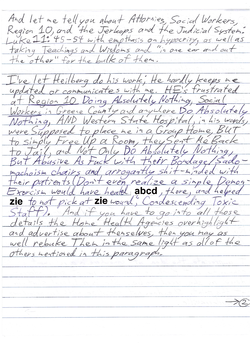 And let me tell you about Attornies, Social Workers,
Region 10, and the Terhops and the Judicial System:
Luke 11:45-54 with emphasis on hypocrisy, as well as
taking Teachings and Wisdoms and "in one ear and out
the other" for the bulk of them.
I've let Heilberg do his work; He hardly keeps me
updated or communicates with me. HE's frustrated
at Region 10. Doing Absolutely Nothing, Social
Workers in Greene County and anywhere Do Absolutely
Nothing, AND Western State Hospital, in his words,
were Supposed to place me in a Group Home, BUT
to simply Free Up a Room, they sent Me Back
to Jail, and Not Only DO Absolutely Nothing,
But Abusive As Fuck with their Bondage/Sado-
machoism chairs and arrogantly shit-minded with
their patients (Don't even realize a simple Demon-
Exorcism would have healed abcd, there, and helped
zie to not pick at zie wound; Condescending Toxic
Staff). And if you have to go into all those
details the Home Health Agencies overhighlight
and advertise about themselves, then you may as
well rebuke Them in the same light as all of the
others mentioned in this paragraph.